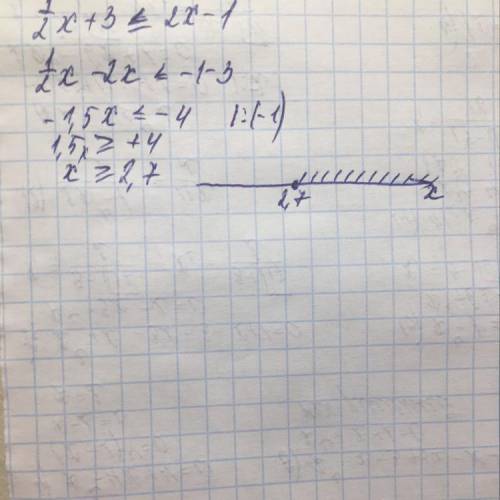 1/2x + 3 ≤ 2x - 1
1/2x - 2x ≤ -1-3
-1,5x ≤ -4 |:(-1)
1,5x ≥ +4
x ≥ 2,7
2,7 x